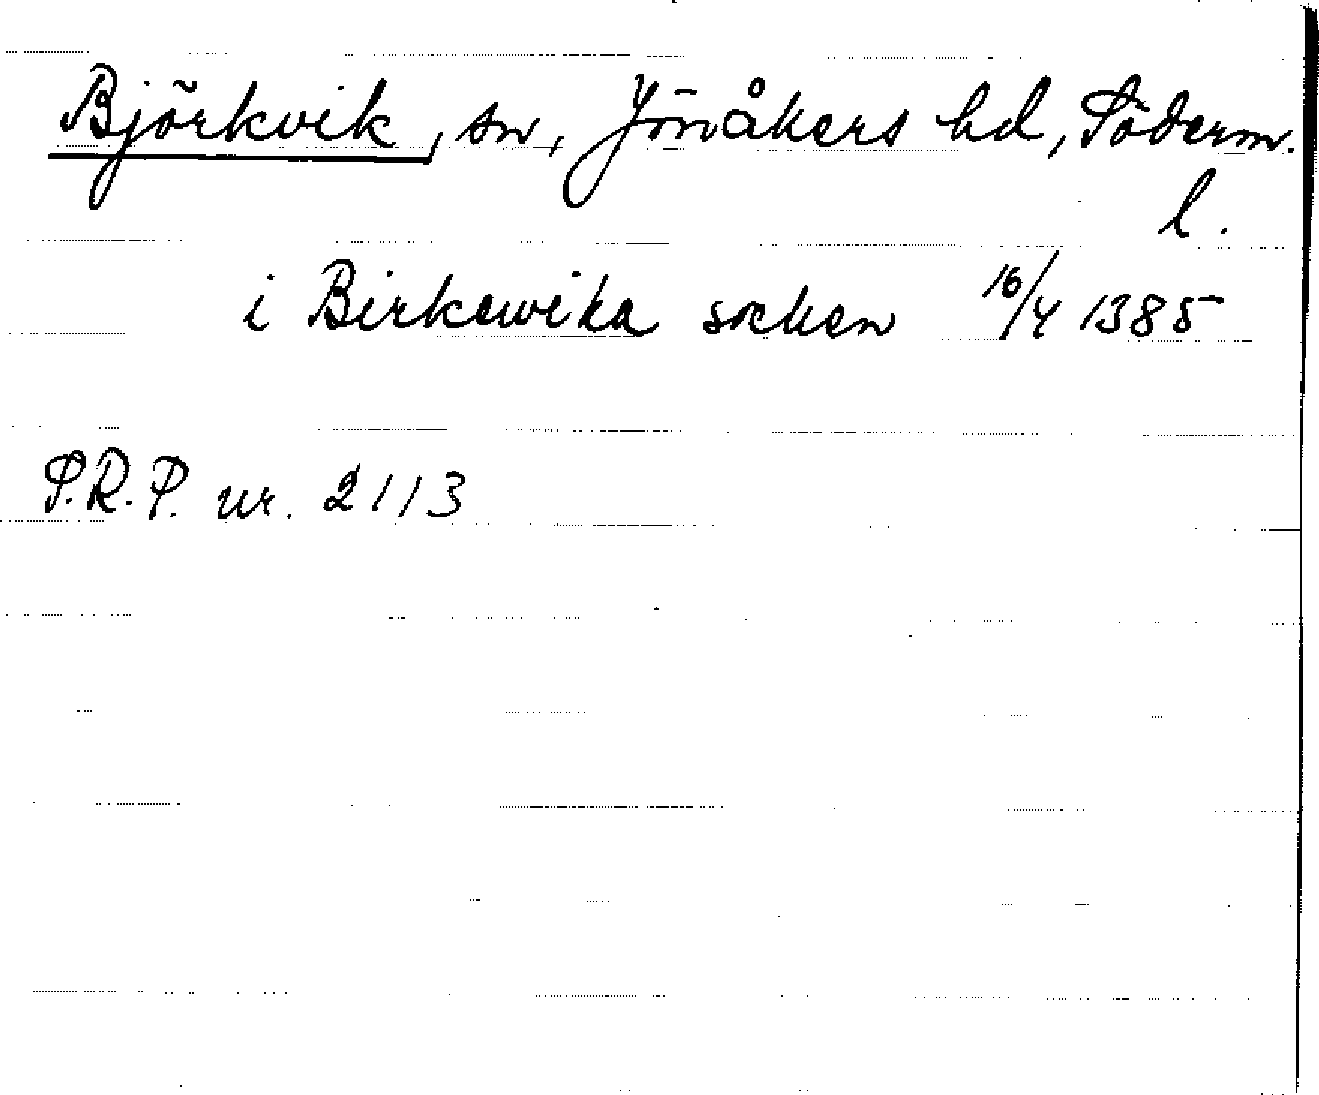 Björkvik, sn, Jönåkers hd, Söderm.
l.
i Birkawika socken 16/4 1385
S.R.P. nr. 2113